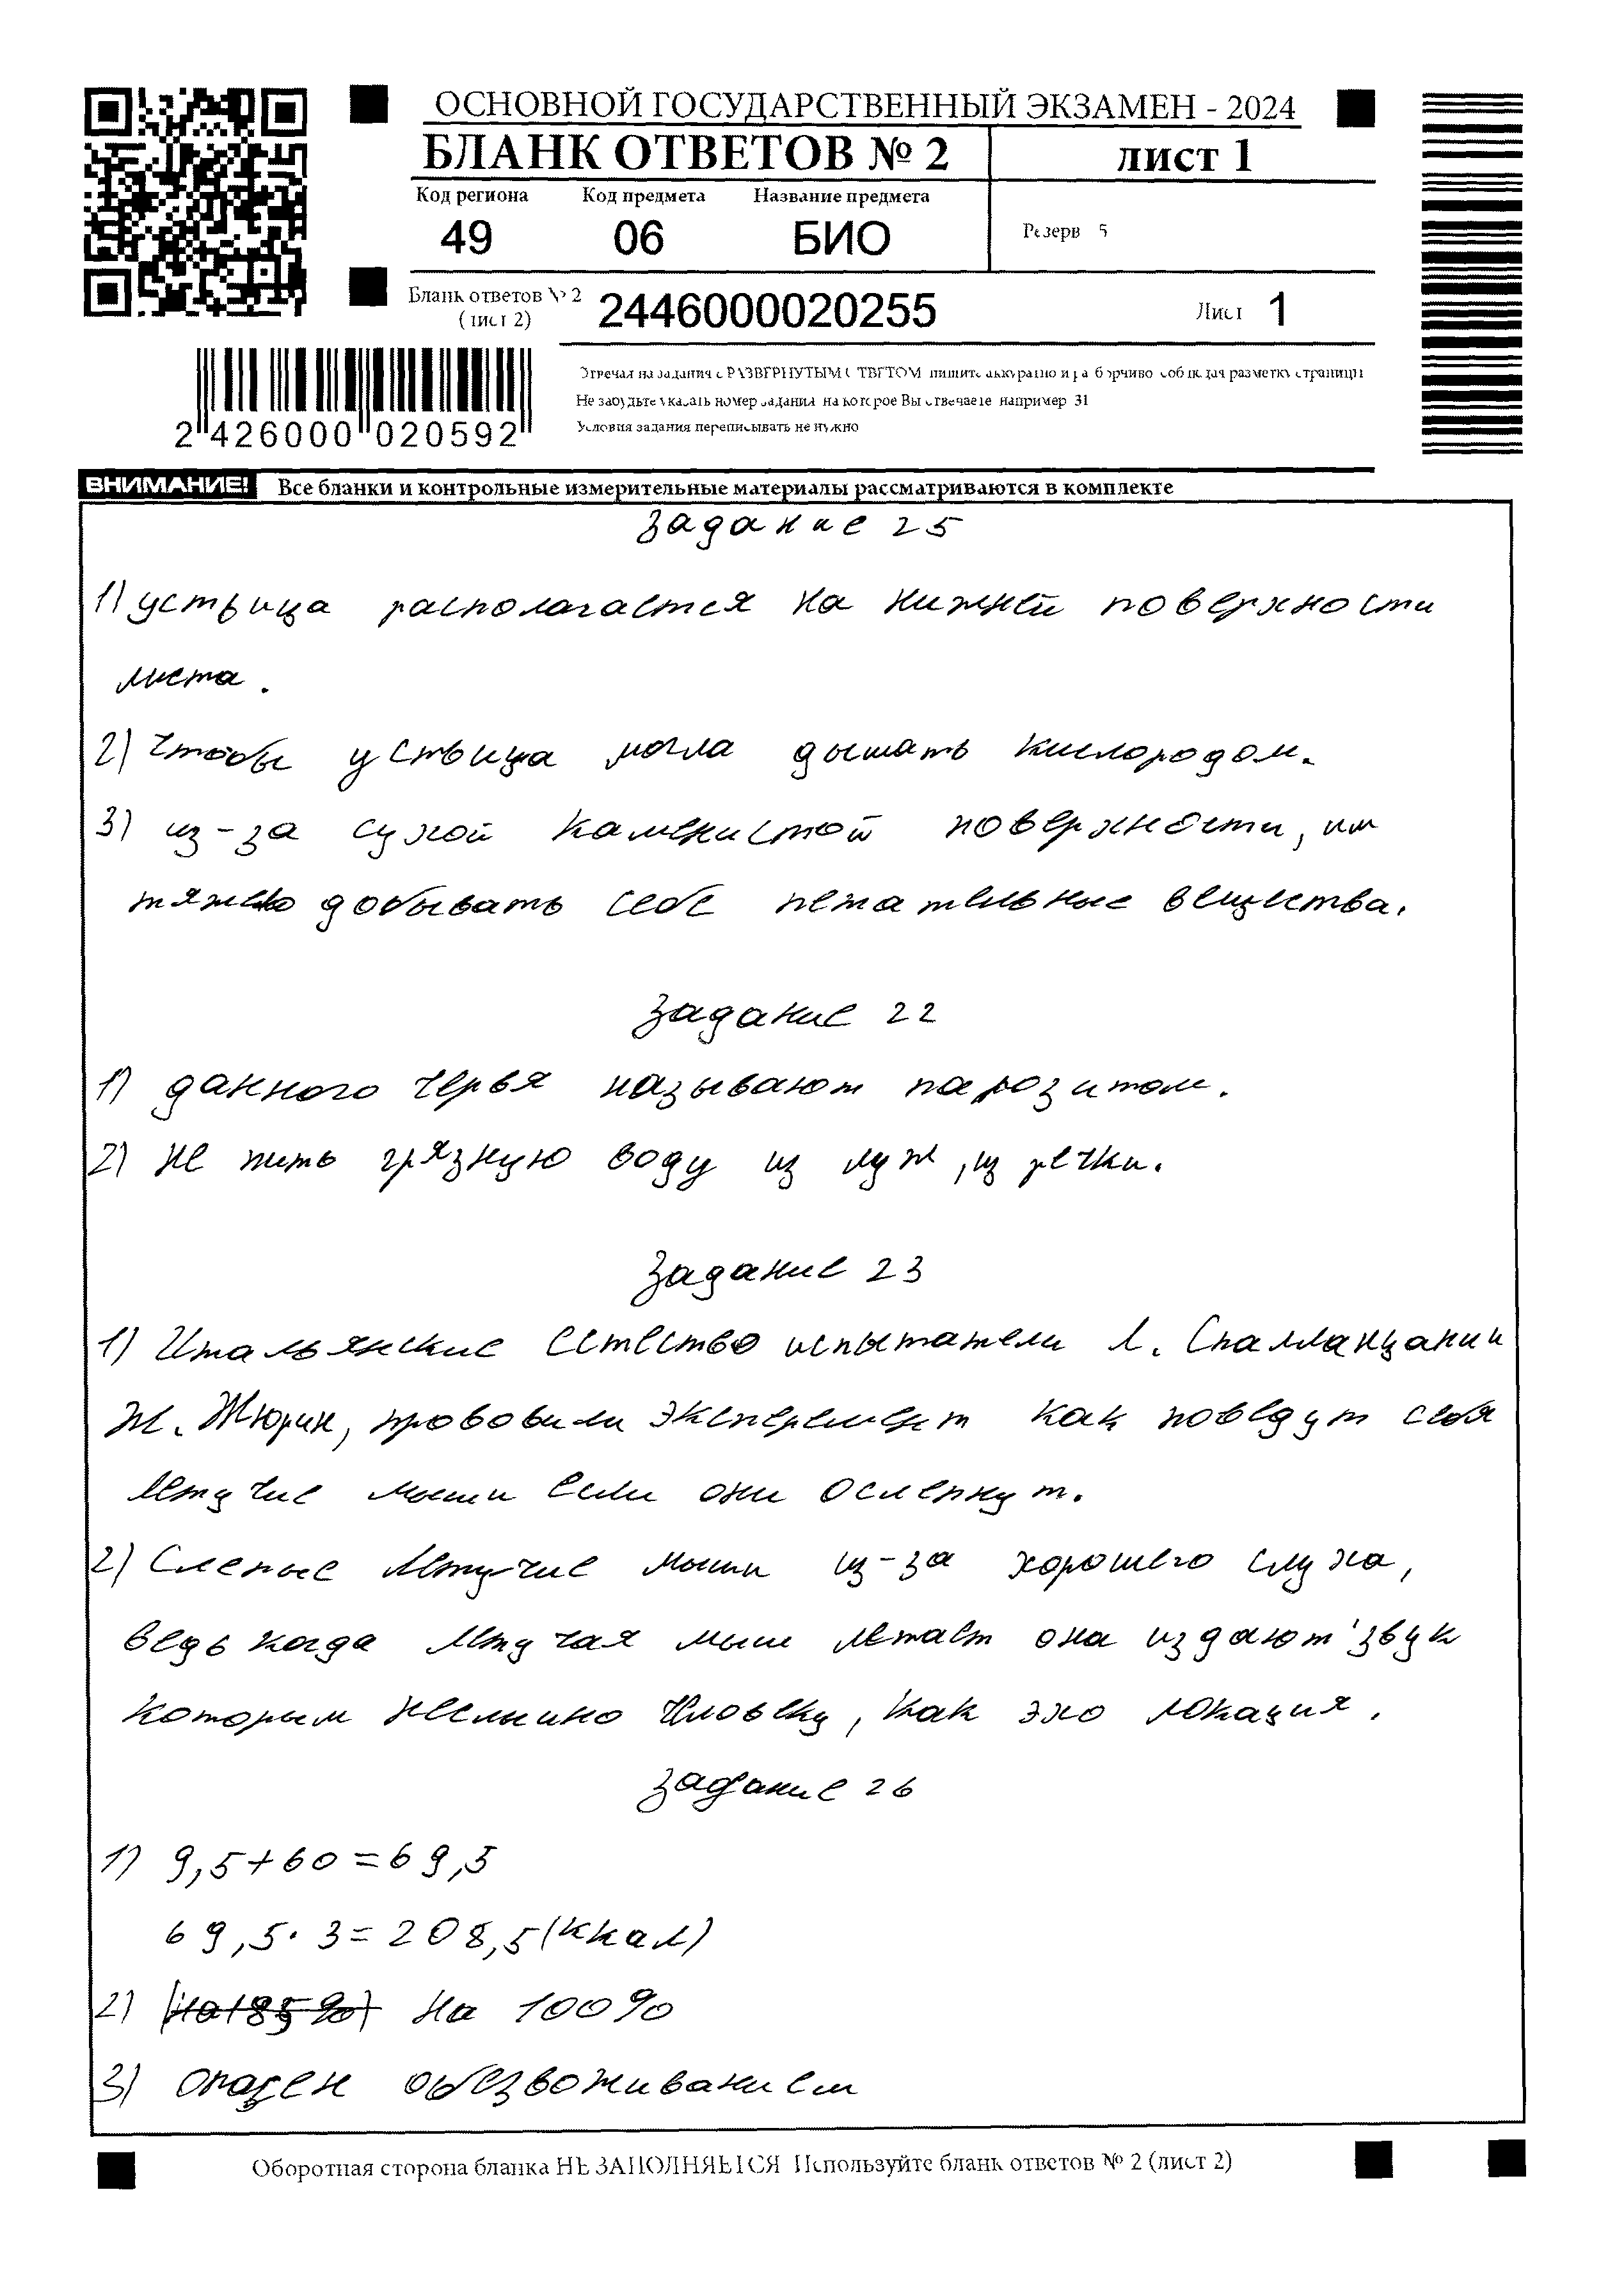 ОСНОВНОЙ ГОСУДАРСТВЕННЫЙ ЭКЗАМЕН - 2024
БЛАНК ОТВЕТОВ № 2 лист 1
Код региона Код предмета Название предмета
49 06 БИО
Резерв 5
Бланк ответов № 2
(лист 2)
2446000020255
Лист 1
2 426000 020592
Отвечая на задания с РАЗВЕРНУТЫМ ОТВЕТОМ пишите аккуратно и разборчиво соблюдая разметку страницы
Не забудьте указать номер задания на которое Вы отвечаете например 31
Условия задания переписывать не нужно
ВНИМАНИЕ! Все бланки и контрольные измерительные материалы рассматриваются в комплекте
Задание 25
1) устьица располагается на нижней поверхности
листа.
2) чтобы устьица могла дышать кислородом.
3) из-за сухой каменистой поверхности, им
тяжело добывать себе петательные вещества.
Задание 22
1) данного червя называют паразитом.
2) Не пить грязную воду из луж, из речки.
Задание 23
1) Итальянские естество испытатели Л. Спалланцани и
Ж. Жюрин, прововили эксперемент как поведут себя
летучие мыши если они ослепнут.
2) Слепые летучие мыши из-за хорошего слуха,
ведь когда летучая мыш летает она издают звук
которым неслышно человеку, как эхо локация.
Задание 26
1) 9,5+60=69,5
69,5·3=208,5(ккал)
2) (на 185%) На 100%
3) опасен обезвоживанием
Оборотная сторона бланка НЕ ЗАПОЛНЯЕТСЯ Используйте бланк ответов № 2 (лист 2)